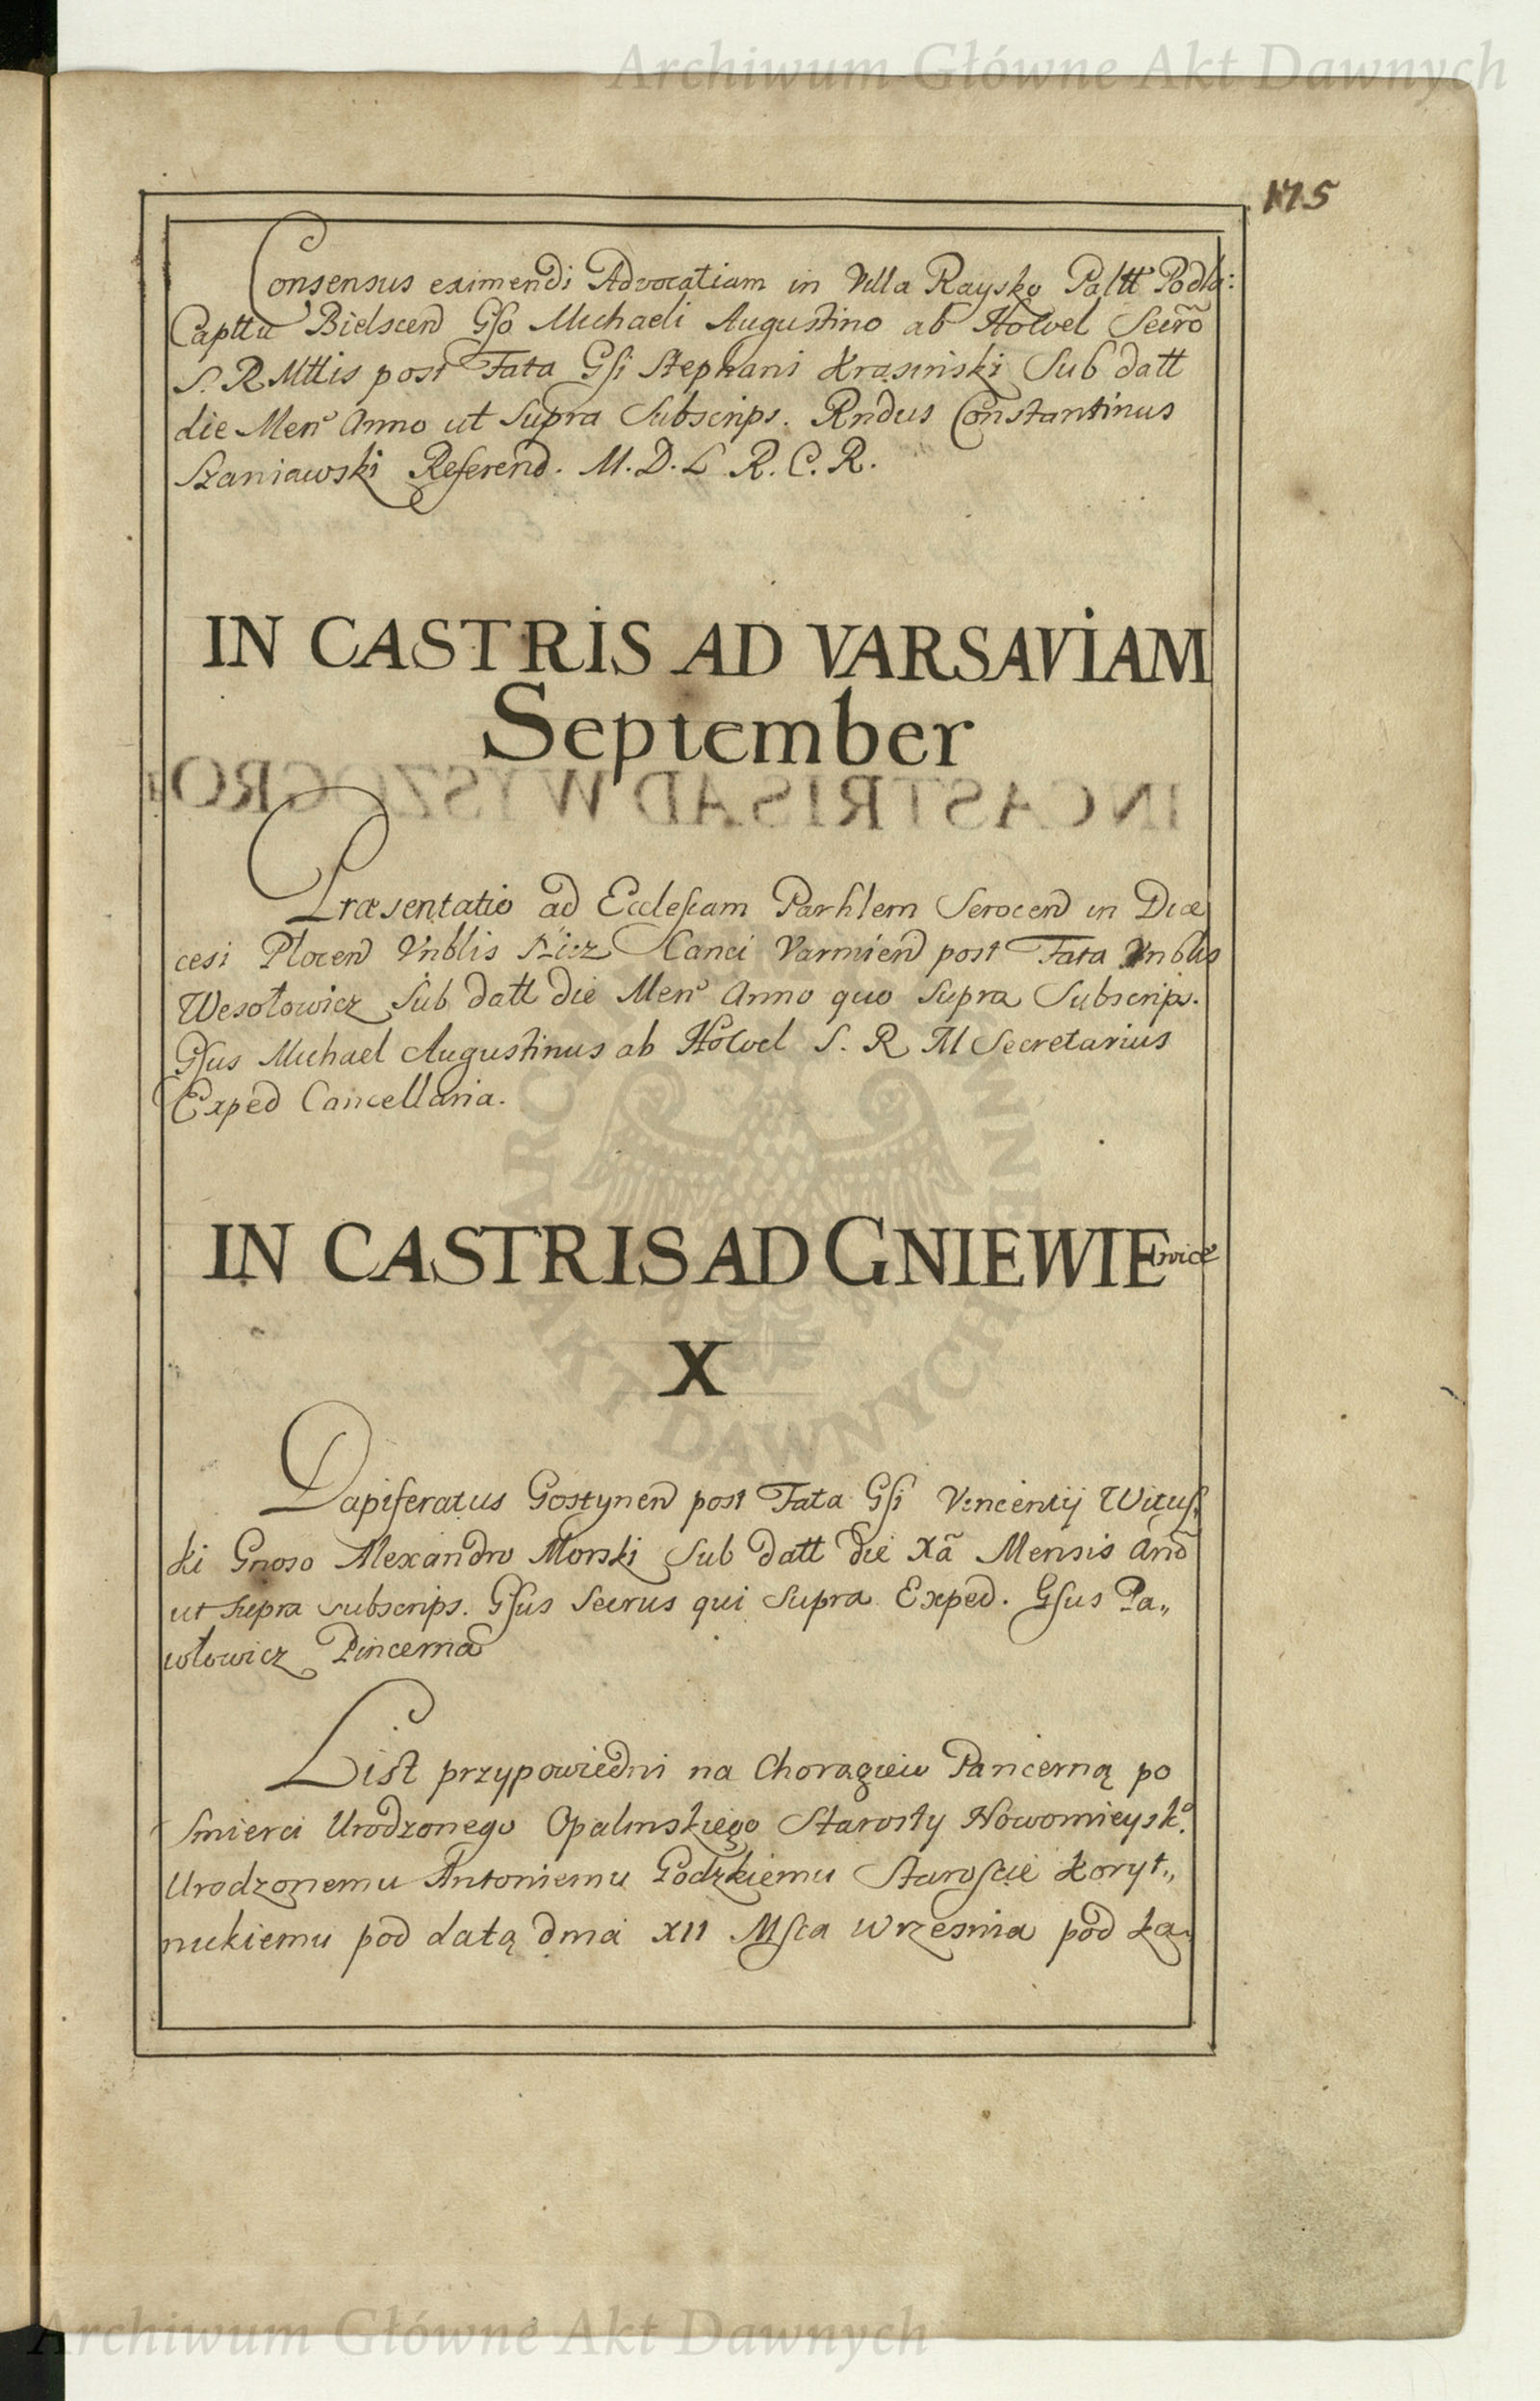 Archiwum Główne Akt Dawnych
175
Consensus eximendi Advocatiam in Villa Raysko Paltt Podla:
Capttu Bielscen Gso Michaeli Augustino ab Holvel Secrõ
S. R Mttis post Fata Gsi Stephani Krasinski Sub datt
die Men Anno ut Supra Subscrips. Rndus Constantinus
Szaniawski Referend. M. D. L R. C. R.
IN CASTRIS AD VARSAVIAM
September
IN CASTRIS AD WYSZOGRO
Præsentatio ad Ecclesiam Parhlem Serocen in Diæ
cesi Plocen Vnblis Canci Varmien post Fata Vnblis
Wesołowicz Sub datt die Men Anno quo Supra Subscrips.
Gsus Michael Augustinus ab Holvel S. R M Secretarius
Exped Cancellaria.
IN CASTRIS AD GNIEWIE
X
Dapiferatus Gostynen post Fata Gsi Vincentij Witus
ki Gnoso Alexandro Morski Sub datt die Xã Mensis Anõ
ut Supra subscrips. Gsus Secrus qui Supra Exped. Gsus Pa„
włowicz Pincerna
List przypowiedni na Choragiew Pancerną po
Smierci Urodzonego Opalinskiego Starosty Nowomieysk°.
Urodzonemu Antoniemu Godzkiemu Staroscie Koryt„
nickiemu pod datą dnia XII Msca Wrzesnia pod Ka„
ARCHIWUM GŁÓWNE AKT DAWNYCH
Archiwum Główne Akt Dawnych